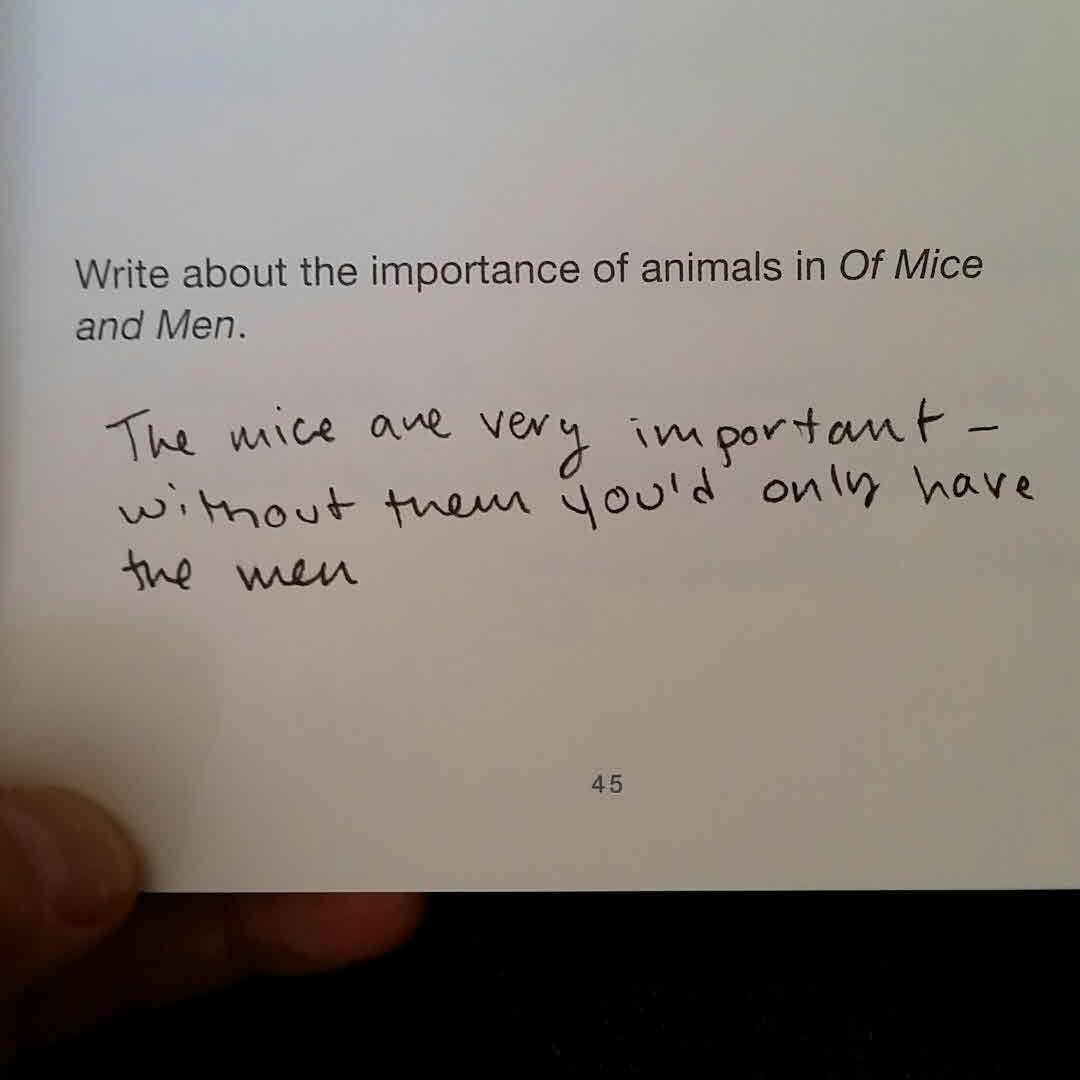 Write about the importance of animals in Of Mice
and Men.
The mice are very important –
without them you'd only have
the men
45